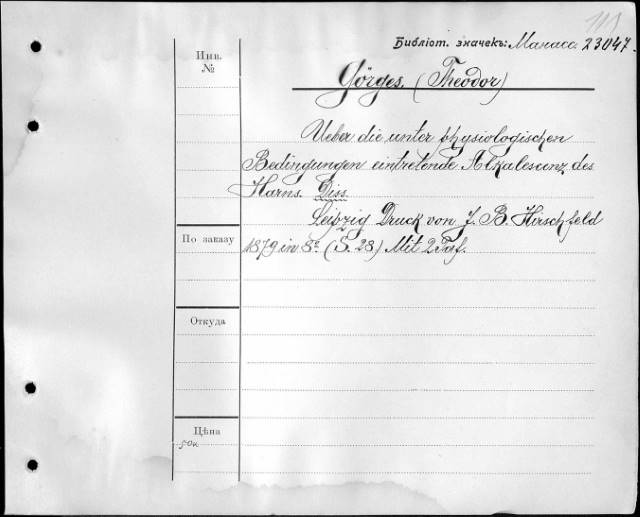 111
Библіот. значекъ: Манасс. 23047.
Инв.
№
Görges. (Theodor)
Ueber die unter physiologischen
Bedingungen eintretende Alkalescenz des
Harns. Diss.
Leipzig Druck von J. B. Hirschfeld
По заказу
1879 in 8º. (S. 28) Mit 2 Taf.
Откуда
Цѣна
50к